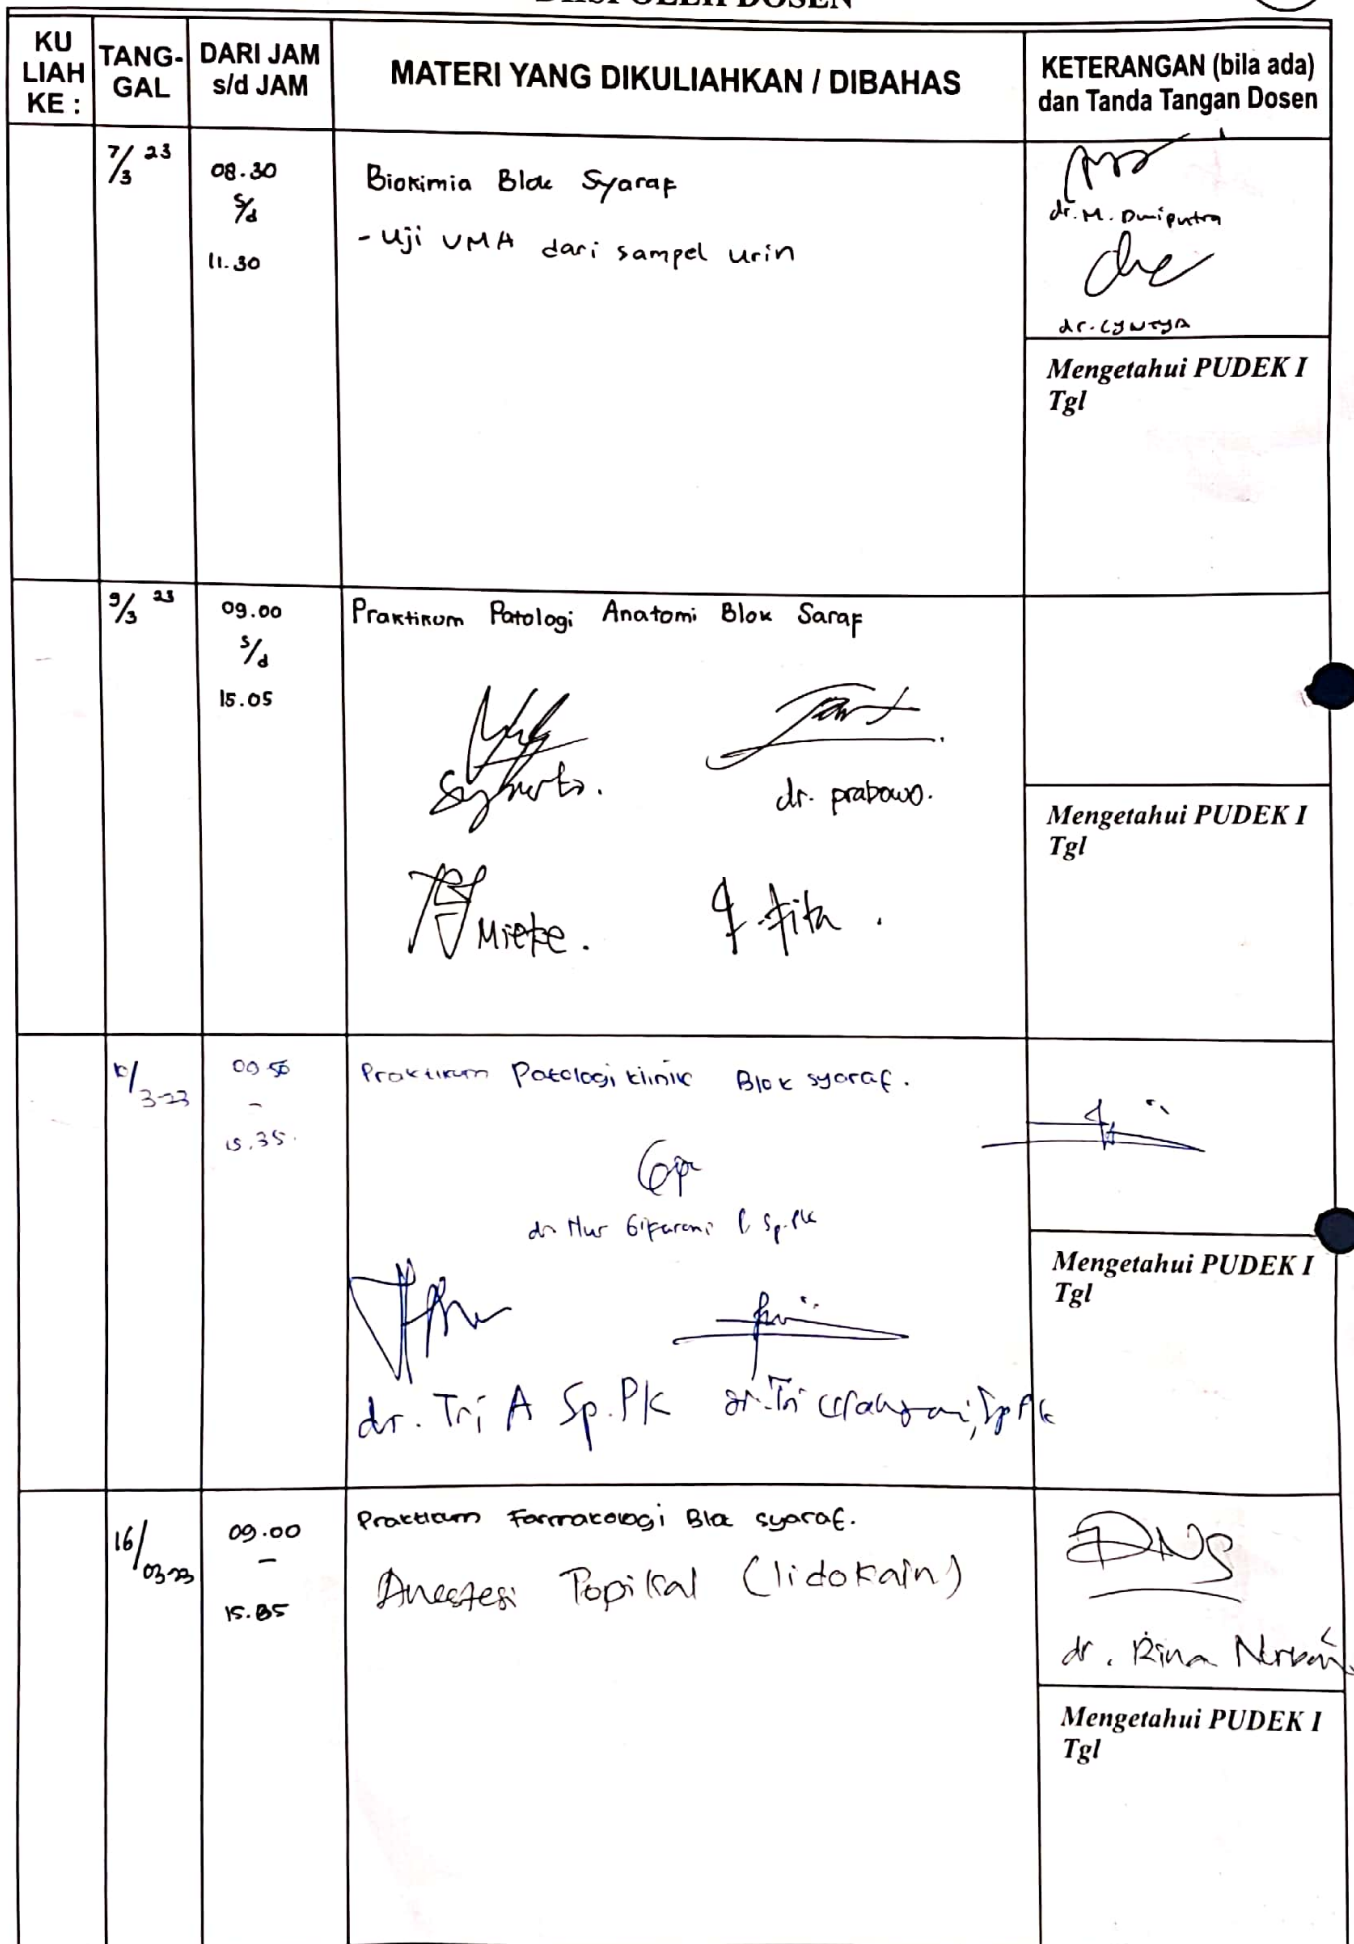 DIISI OLEH DOSEN
KU
LIAH
KE :
TANG-
GAL
DARI JAM
s/d JAM
MATERI YANG DIKULIAHKAN / DIBAHAS
KETERANGAN (bila ada)
dan Tanda Tangan Dosen
7/3 23
08.30
s/d
11.30
Biokimia Blok Syaraf
- Uji VMA dari sampel urin
dr. M. Dwiputra
dr. Cyntya
Mengetahui PUDEK I
Tgl
9/3 23
09.00
s/d
15.05
Praktikum Patologi Anatomi Blok Saraf
dr. prabowo.
Mieke.
fita.
Mengetahui PUDEK I
Tgl
3-23
15.35.
Praktikum Patologi klinik Blok syaraf.
dr Nur Sp.PK
dr. Tri A Sp.PK
dr. Tri SpPk
Mengetahui PUDEK I
Tgl
16/03-23
09.00
-
Praktikum Farmakologi Blok syaraf.
Anestesi Topikal (lidokain)
dr. Rina
Mengetahui PUDEK I
Tgl